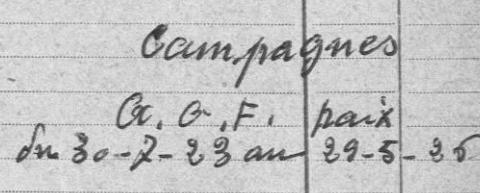 Campagnes
A. O. F. paix
du 30-7-23 au 29-5-25